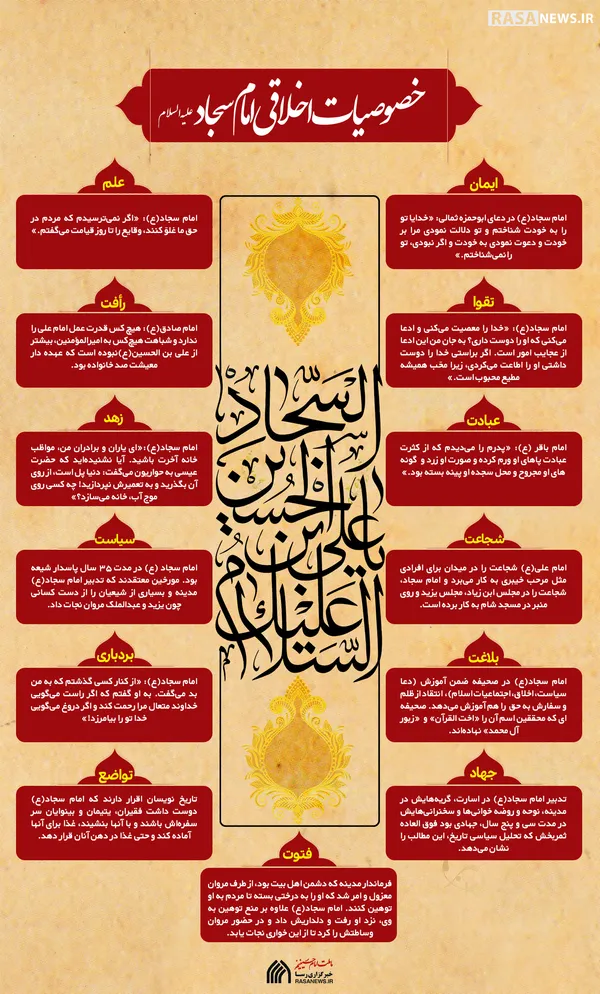 RASANEWS.IR
خصوصیات اخلاقی امام سجاد علیه السلام
ایمان
امام سجاد(ع) در دعای ابوحمزه ثمالی: «خدایا تو
را به خودت شناختم و تو دلالت نمودی مرا بر
خودت و دعوت نمودی به خودت و اگر نبودی، تو
را نمی‌شناختم.»
علم
امام سجاد(ع): «اگر نمی‌ترسیدم که مردم در
حق ما غلوّ کنند، وقایع را تا روز قیامت می‌گفتم.»
تقوا
امام سجاد(ع): «خدا را معصیت می‌کنی و ادعا
می‌کنی که او را دوست داری؟ به جان من این ادعا
از عجایب امور است. اگر براستی خدا را دوست
داشتی او را اطاعت می‌کردی، زیرا مخب همیشه
مطیع محبوب است.»
رأفت
امام صادق(ع): هیچ کس قدرت عمل امام علی را
ندارد و شباهت هیچ‌کس به امیرالمؤمنین، بیشتر
از علی بن الحسین(ع) نبوده است که عهده دار
معیشت صد خانواده بود.
عبادت
امام باقر (ع): «پدرم را می‌دیدم که از کثرت
عبادت پاهای او ورم کرده و صورت او زرد و گونه
های او مجروح و محل سجده او پینه بسته بود.»
زهد
امام سجاد(ع): «ای یاران و برادران من، مواظب
خانه آخرت باشید. آیا نشنیده‌اید که حضرت
عیسی به حواریون می‌گفت: دنیا پل است، از روی
آن بگذرید و به تعمیرش نپردازید! چه کسی روی
موج آب، خانه می‌سازد؟»
شجاعت
امام علی(ع) شجاعت را در میدان برای افرادی
مثل مرحب خیبری به کار می‌برد و امام سجاد،
شجاعت را در مجلس ابن زیاد، مجلس یزید و روی
منبر در مسجد شام به کار برده است.
سیاست
امام سجاد (ع) در مدت ۳۵ سال پاسدار شیعه
بود. مورخین معتقدند که تدبیر امام سجاد(ع)
مدینه و بسیاری از شیعیان را از دست کسانی
چون یزید و عبدالملک مروان نجات داد.
بلاغت
امام سجاد(ع) در صحیفه ضمن آموزش (دعا
سیاست، اخلاق، اجتماعیات اسلام)، انتقاد از ظلم
و سفارش به حق را هم آموزش می‌دهد. صحیفه
ای که محققین اسم آن را «اخت القرآن» و «زبور
آل محمد» نهاده‌اند.
بردباری
امام سجاد(ع): «از کنار کسی گذشتم که به من
بد می‌گفت. به او گفتم که اگر راست می‌گویی
خداوند متعال مرا رحمت کند و اگر دروغ می‌گویی
خدا تو را بیامرزد!»
جهاد
تدبیر امام سجاد(ع) در اسارت، گریه‌هایش در
مدینه، نوحه و روضه خوانی‌ها و سخنرانی‌هایش
در مدت سی و پنج سال، جهادی بود فوق العاده
ثمربخش که تحلیل سیاسی تاریخ، این مطالب را
نشان می‌دهد.
تواضع
تاریخ نویسان اقرار دارند که امام سجاد(ع)
دوست داشت فقیران، یتیمان و بینوایان سر
سفره‌اش باشند و با آنها بنشیند، غذا برای آنها
آماده کند و حتی غذا در دهن آنان قرار دهد.
السلام علیک یا علی ابن الحسین السجاد
فتوت
فرماندار مدینه که دشمن اهل بیت بود، از طرف مروان
معزول و امر شد که او را به درختی بسته تا مردم به او
توهین کنند. امام سجاد(ع) علاوه بر منع توهین به
وی، نزد او رفت و دلداریش داد و در حضور مروان
وساطتش را کرد تا از این خواری نجات یابد.
خبرگزاری رسا
RASANEWS.IR